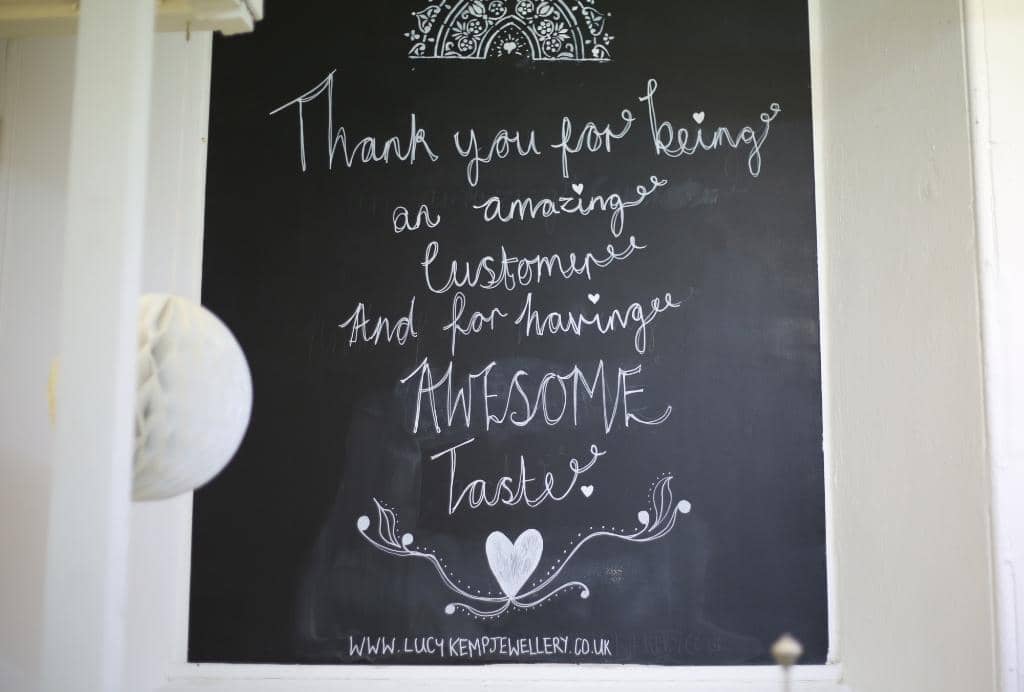 Thank you for being
an amazing
Customer
And for having
AWESOME
Taste.
WWW.LUCYKEMPJEWELLERY.CO.UK